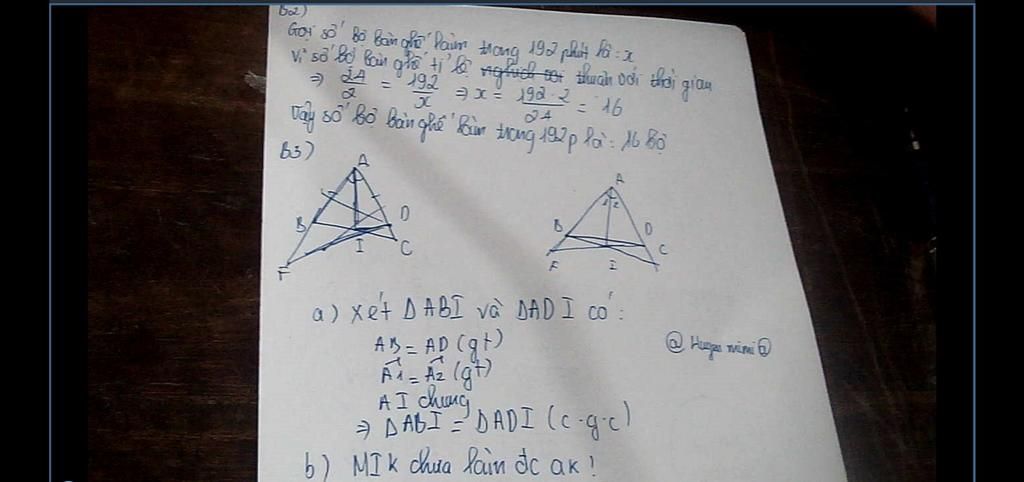 B2)
Gọi số bộ bàn ghế làm trong 192 phút là: x
Vì số bộ bàn ghế tỉ lệ nghịch với thuận với thời gian
⇒ 24/2 = 192/x ⇒ x = 192·2/24 = 16
Vậy số bộ bàn ghế làm trong 192p là: 16 bộ
B3)
A
B D
I C
F
A
1 2
B D
F I C
a) Xét ΔABI và ΔADI có:
AB = AD (gt)
Â1 = Â2 (gt)
AI chung
⇒ ΔABI = ΔADI (c·g·c)
@ Huyen mimi @
b) MIK chưa làm đc ak!